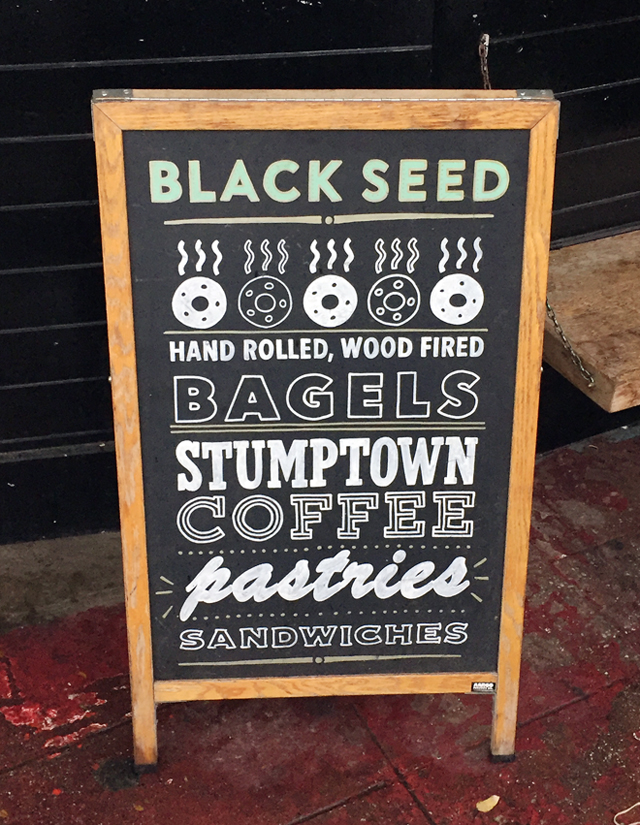 BLACK SEED
HAND ROLLED, WOOD FIRED
BAGELS
STUMPTOWN
COFFEE
pastries
SANDWICHES